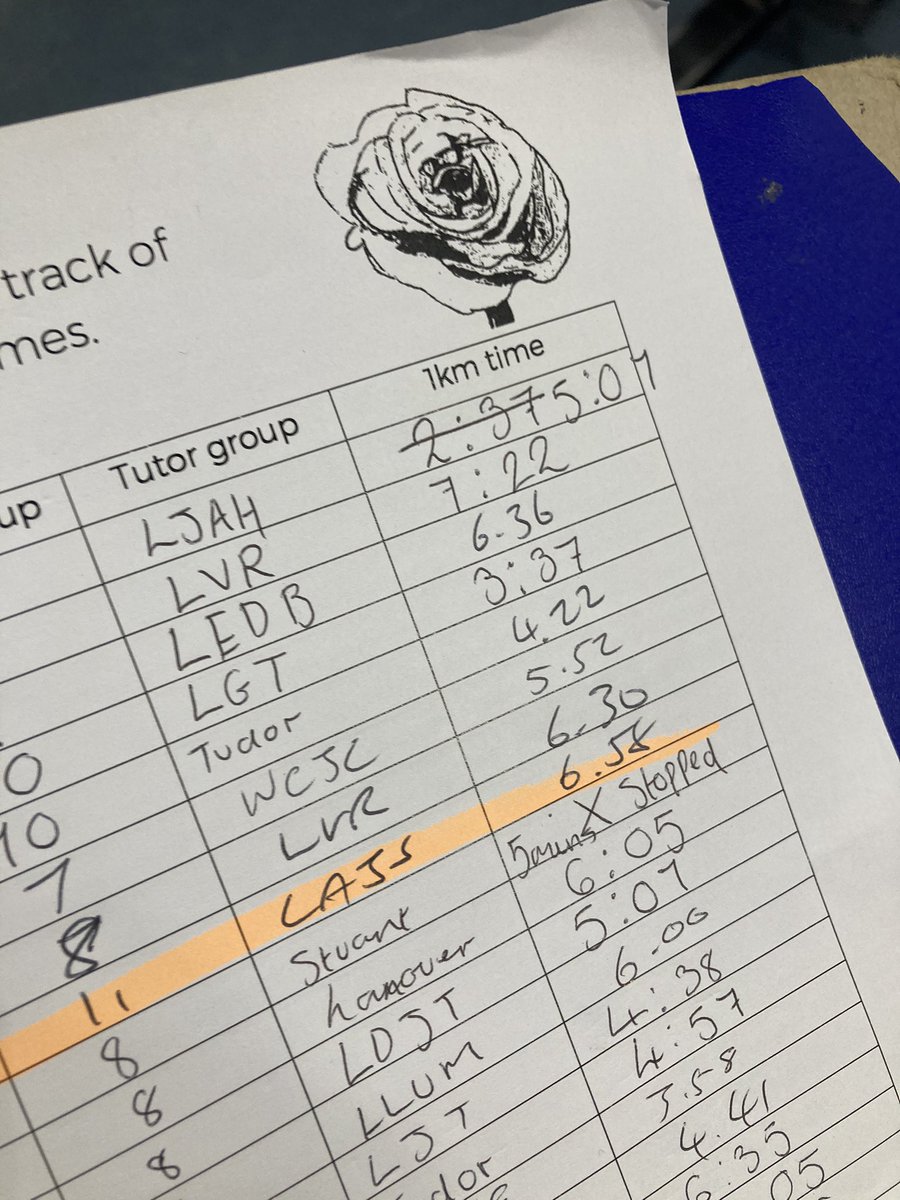 track of
mes.
up Tutor group 1km time
LJAH 2:37 5:07
LVR 7:22
LEDB 6.36
0 LGT 3:37
10 Tudor 4.22
7 WCJC 5.52
8 LVR 6.30
11 LAJS 6.58
8 Stuart 5mins X Stopped
8 hanover 6:05
8 LDJT 5:07
LLUM 6.00
LJT 4:38
dor 4:57
4.41
6:35
05